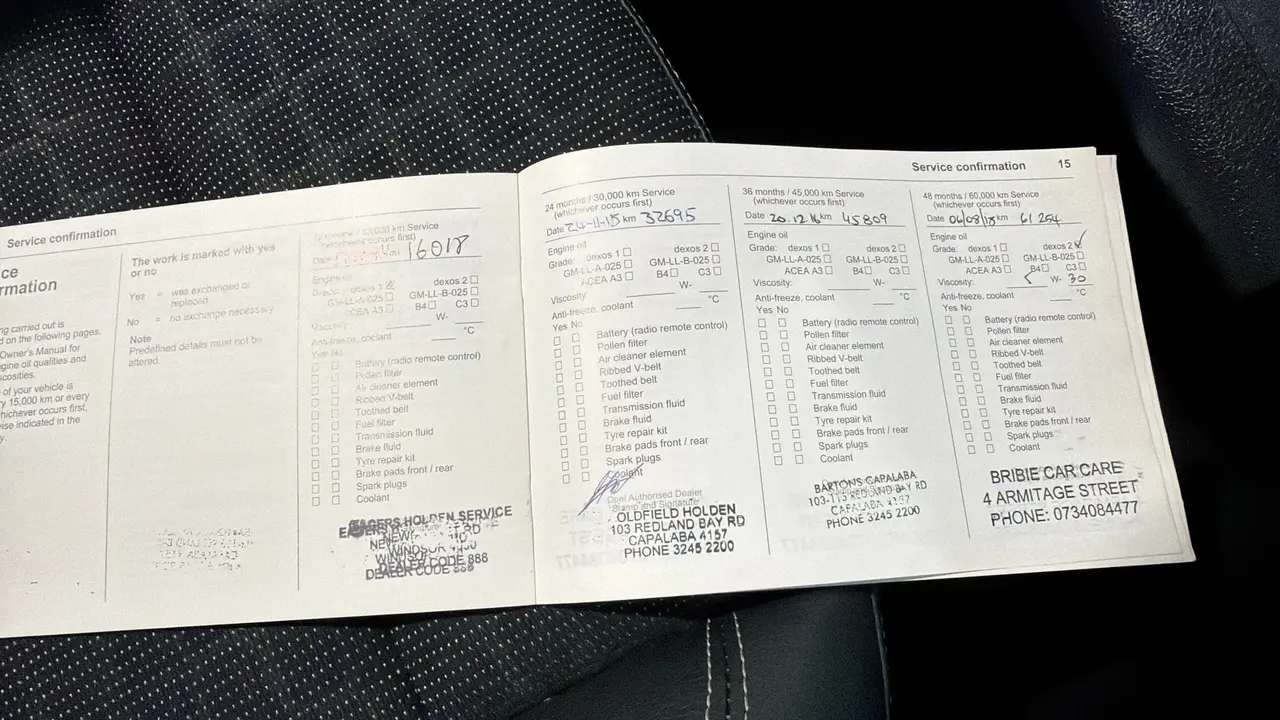 Service confirmation
ce
rmation
ng carried out is
d on the following pages.
Owner's Manual for
gine oil qualities and
scosities.
of your vehicle is
y 15,000 km or every
hichever occurs first,
ise indicated in the
y.
The work is marked with yes
or no
Yes = was exchanged or
replaced
No = no exchange necessary
Note
Predefined details must not be
altered.
km Service
(whichever occurs first)
Date km 16018
Engine oil
Grade: dexos 1 dexos 2
GM-LL-A-025 GM-LL-B-025
ACEA A3 B4 C3
Viscosity: W-
Anti-freeze, coolant °C
Yes No
Battery (radio remote control)
Pollen filter
Air cleaner element
Ribbed V-belt
Toothed belt
Fuel filter
Transmission fluid
Brake fluid
Tyre repair kit
Brake pads front / rear
Spark plugs
Coolant
EAGERS HOLDEN SERVICE
WINDSOR
DEALER CODE 888
Service confirmation 15
24 months / 30,000 km Service
(whichever occurs first)
Date 24-11-15 km 32695
Engine oil
Grade: dexos 1 dexos 2
GM-LL-A-025 GM-LL-B-025
ACEA A3 B4 C3
Viscosity: W-
Anti-freeze, coolant °C
Yes No
Battery (radio remote control)
Pollen filter
Air cleaner element
Ribbed V-belt
Toothed belt
Fuel filter
Transmission fluid
Brake fluid
Tyre repair kit
Brake pads front / rear
Spark plugs
Coolant
Opel Authorised Dealer
Stamp and Signature
OLDFIELD HOLDEN
103 REDLAND BAY RD
CAPALABA 4157
PHONE 3245 2200
36 months / 45,000 km Service
(whichever occurs first)
Date 20.12.16 km 45809
Engine oil
Grade: dexos 1 dexos 2
GM-LL-A-025 GM-LL-B-025
ACEA A3 B4 C3
Viscosity: W-
Anti-freeze, coolant °C
Yes No
Battery (radio remote control)
Pollen filter
Air cleaner element
Ribbed V-belt
Toothed belt
Fuel filter
Transmission fluid
Brake fluid
Tyre repair kit
Brake pads front / rear
Spark plugs
Coolant
BARTONS CAPALABA
103-113 REDLAND BAY RD
CAPALABA 4157
PHONE 3245 2200
48 months / 60,000 km Service
(whichever occurs first)
Date 06/08/18 km 61254
Engine oil
Grade: dexos 1 dexos 2
GM-LL-A-025 GM-LL-B-025
ACEA A3 B4 C3
Viscosity: 5 W- 30
Anti-freeze, coolant °C
Yes No
Battery (radio remote control)
Pollen filter
Air cleaner element
Ribbed V-belt
Toothed belt
Fuel filter
Transmission fluid
Brake fluid
Tyre repair kit
Brake pads front / rear
Spark plugs
Coolant
BRIBIE CAR CARE
4 ARMITAGE STREET
PHONE: 0734084477